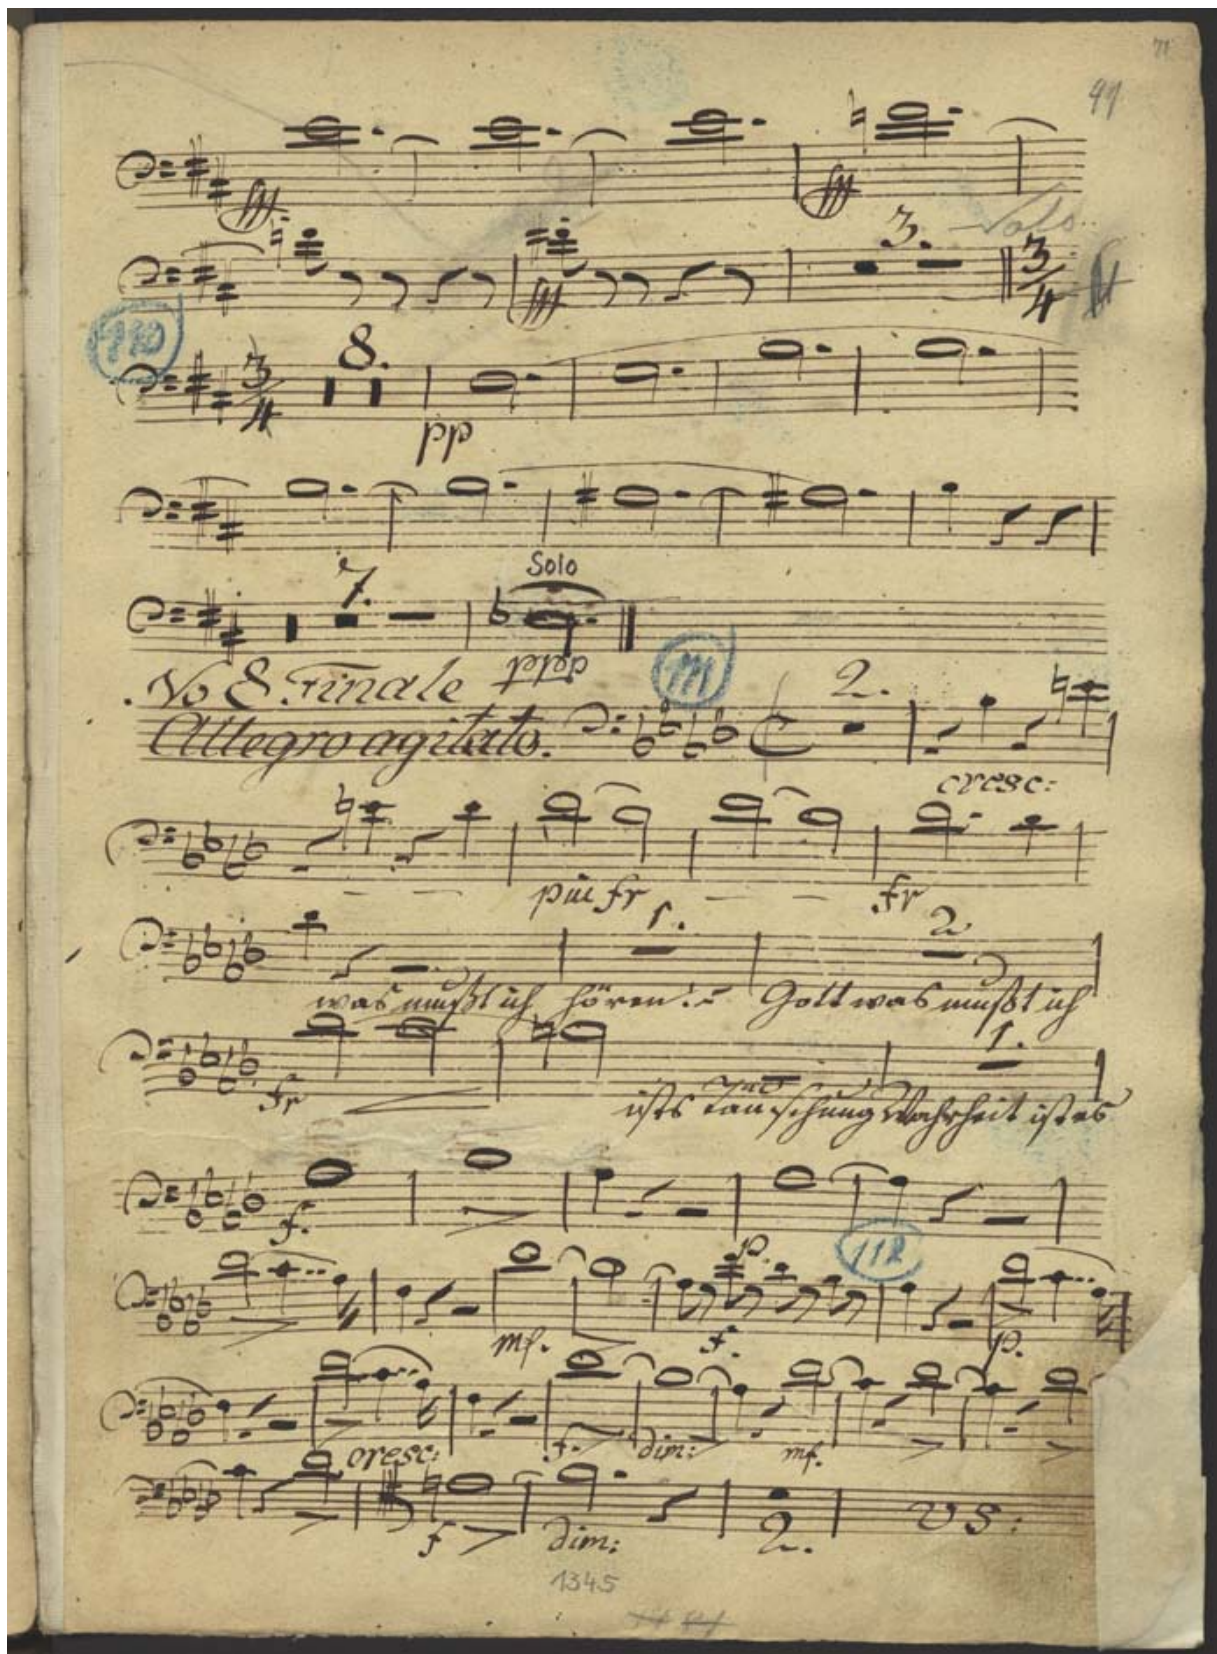 97
fff fff
3. Solo
fff 3/4
110
3/4 8.
pp
7. Solo
ppp
No 8 Finale 111 2.
Allegro agitato.
cresc:
più fr fr
1. 2
was mußt ich hören!= Gott was mußt ich
1.
fr
ists Täuschung Wahrheit ist es
f.
p. 112
mf. f. p.
cresc: f. dim: mf.
f dim: 2. VS:
1345